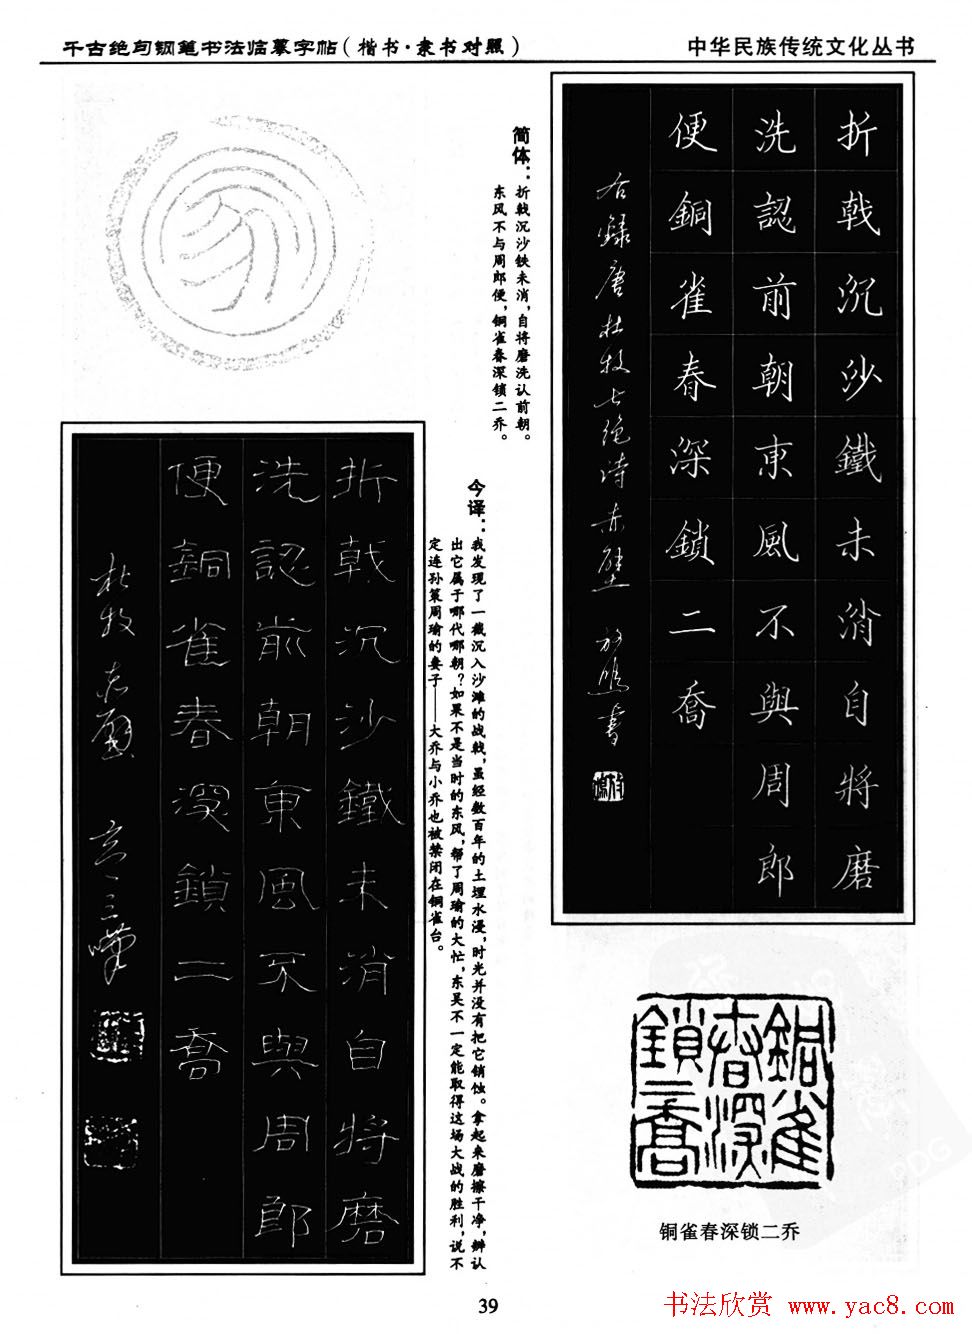 千古绝句钢笔书法临摹字帖(楷书·隶书对照)
中华民族传统文化丛书
折戟沉沙鐵未消自將磨
洗認前朝東風不與周郎
便銅雀春深鎖二喬
右録唐杜牧七绝诗赤壁
書
简体：折戟沉沙铁未消，自将磨洗认前朝。
东风不与周郎便，铜雀春深锁二乔。
今译：我发现了一截沉入沙滩的战戟，虽经数百年的土埋水浸，时光并没有把它销蚀。拿起来磨擦干净，辨认
出它属于哪代哪朝？如果不是当时的东风，帮了周瑜的大忙，东吴不一定能取得这场大战的胜利，说不
定连孙策周瑜的妻子——大乔与小乔也被禁闭在铜雀台。
折戟沉沙鐵未消自將磨
洗認前朝東風不與周郎
便銅雀春深鎖二喬
杜牧赤壁
銅雀
春深
鎖二喬
铜雀春深锁二乔
39
书法欣赏 www.yac8.com